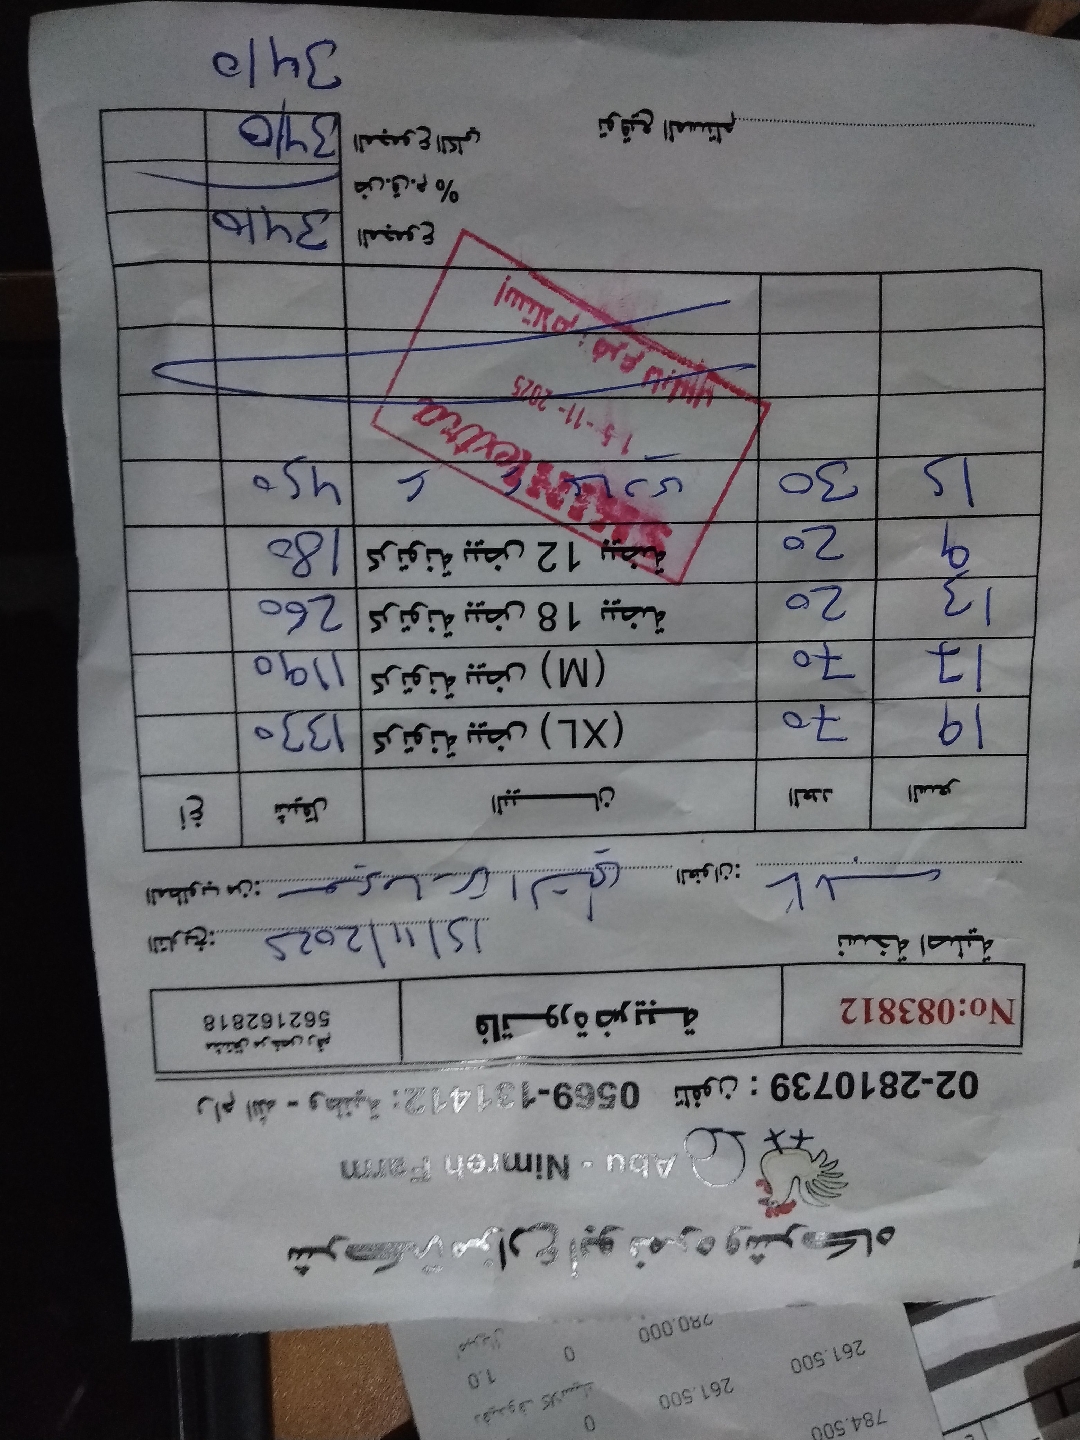 شركة مزارع ابو نمره وشركاه
Abu - Nimreh Farm
رام الله - وطنية: 0569-131412 تلفون: 02-2810739
مشتغل مرخص رقم
562162818
فاتورة ضريبية
No:083812
نسخة اصلية
التاريخ: 15/11/2025
المطلوب من: العنوان:
السعر العدد البيان شيقل أغ
19 70 كرتونة بيض (XL) 1330
17 70 كرتونة بيض (M) 1190
13 20 كرتونة بيض 18 بيضة 260
9 20 كرتونة بيض 12 بيضة 180
15 30 450
extra
15-11-2025
استلام: فرع نابلس
المجموع 3410
ض.ق.م %
المجموع الكلي 3410
توقيع المستلم
3410
784.500
261.500 261.500 0
280.000 0 1.0